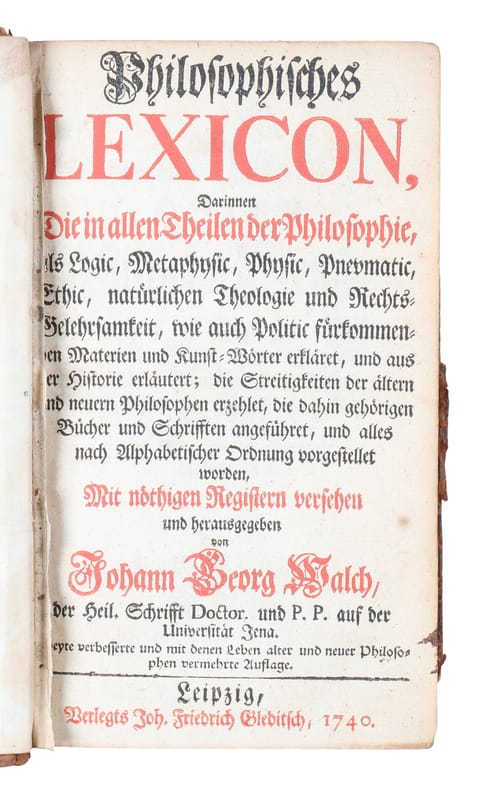 Philosophisches
LEXICON,
Darinnen
Die in allen Theilen der Philosophie,
als Logic, Metaphysic, Physic, Pnevmatic,
Ethic, natürlichen Theologie und Rechts-
Gelehrsamkeit, wie auch Politic fürkommen-
den Materien und Kunst-Wörter erkläret, und aus
der Historie erläutert; die Streitigkeiten der ältern
und neuern Philosophen erzehlet, die dahin gehörigen
Bücher und Schrifften angeführet, und alles
nach Alphabetischer Ordnung vorgestellet
worden,
Mit nöthigen Registern versehen
und herausgegeben
von
Johann Georg Walch,
der Heil. Schrifft Doctor. und P. P. auf der
Universität Jena.
verbesserte und mit denen Leben alter und neuer Philoso-
phen vermehrte Auflage.
Leipzig,
Verlegts Joh. Friedrich Gleditsch, 1740.